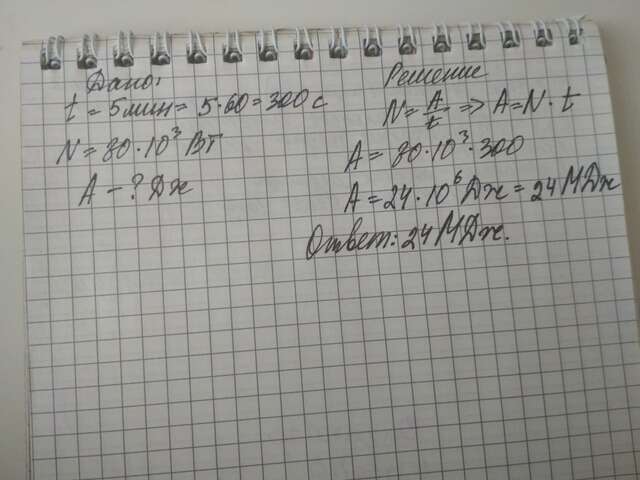 Дано:
t = 5 мин = 5·60 = 300 с
N = 80·10³ Вт
A - ? Дж
Решение
N = A/t => A = N·t
A = 80·10³·300
A = 24·10⁶ Дж = 24 МДж
Ответ: 24 МДж.